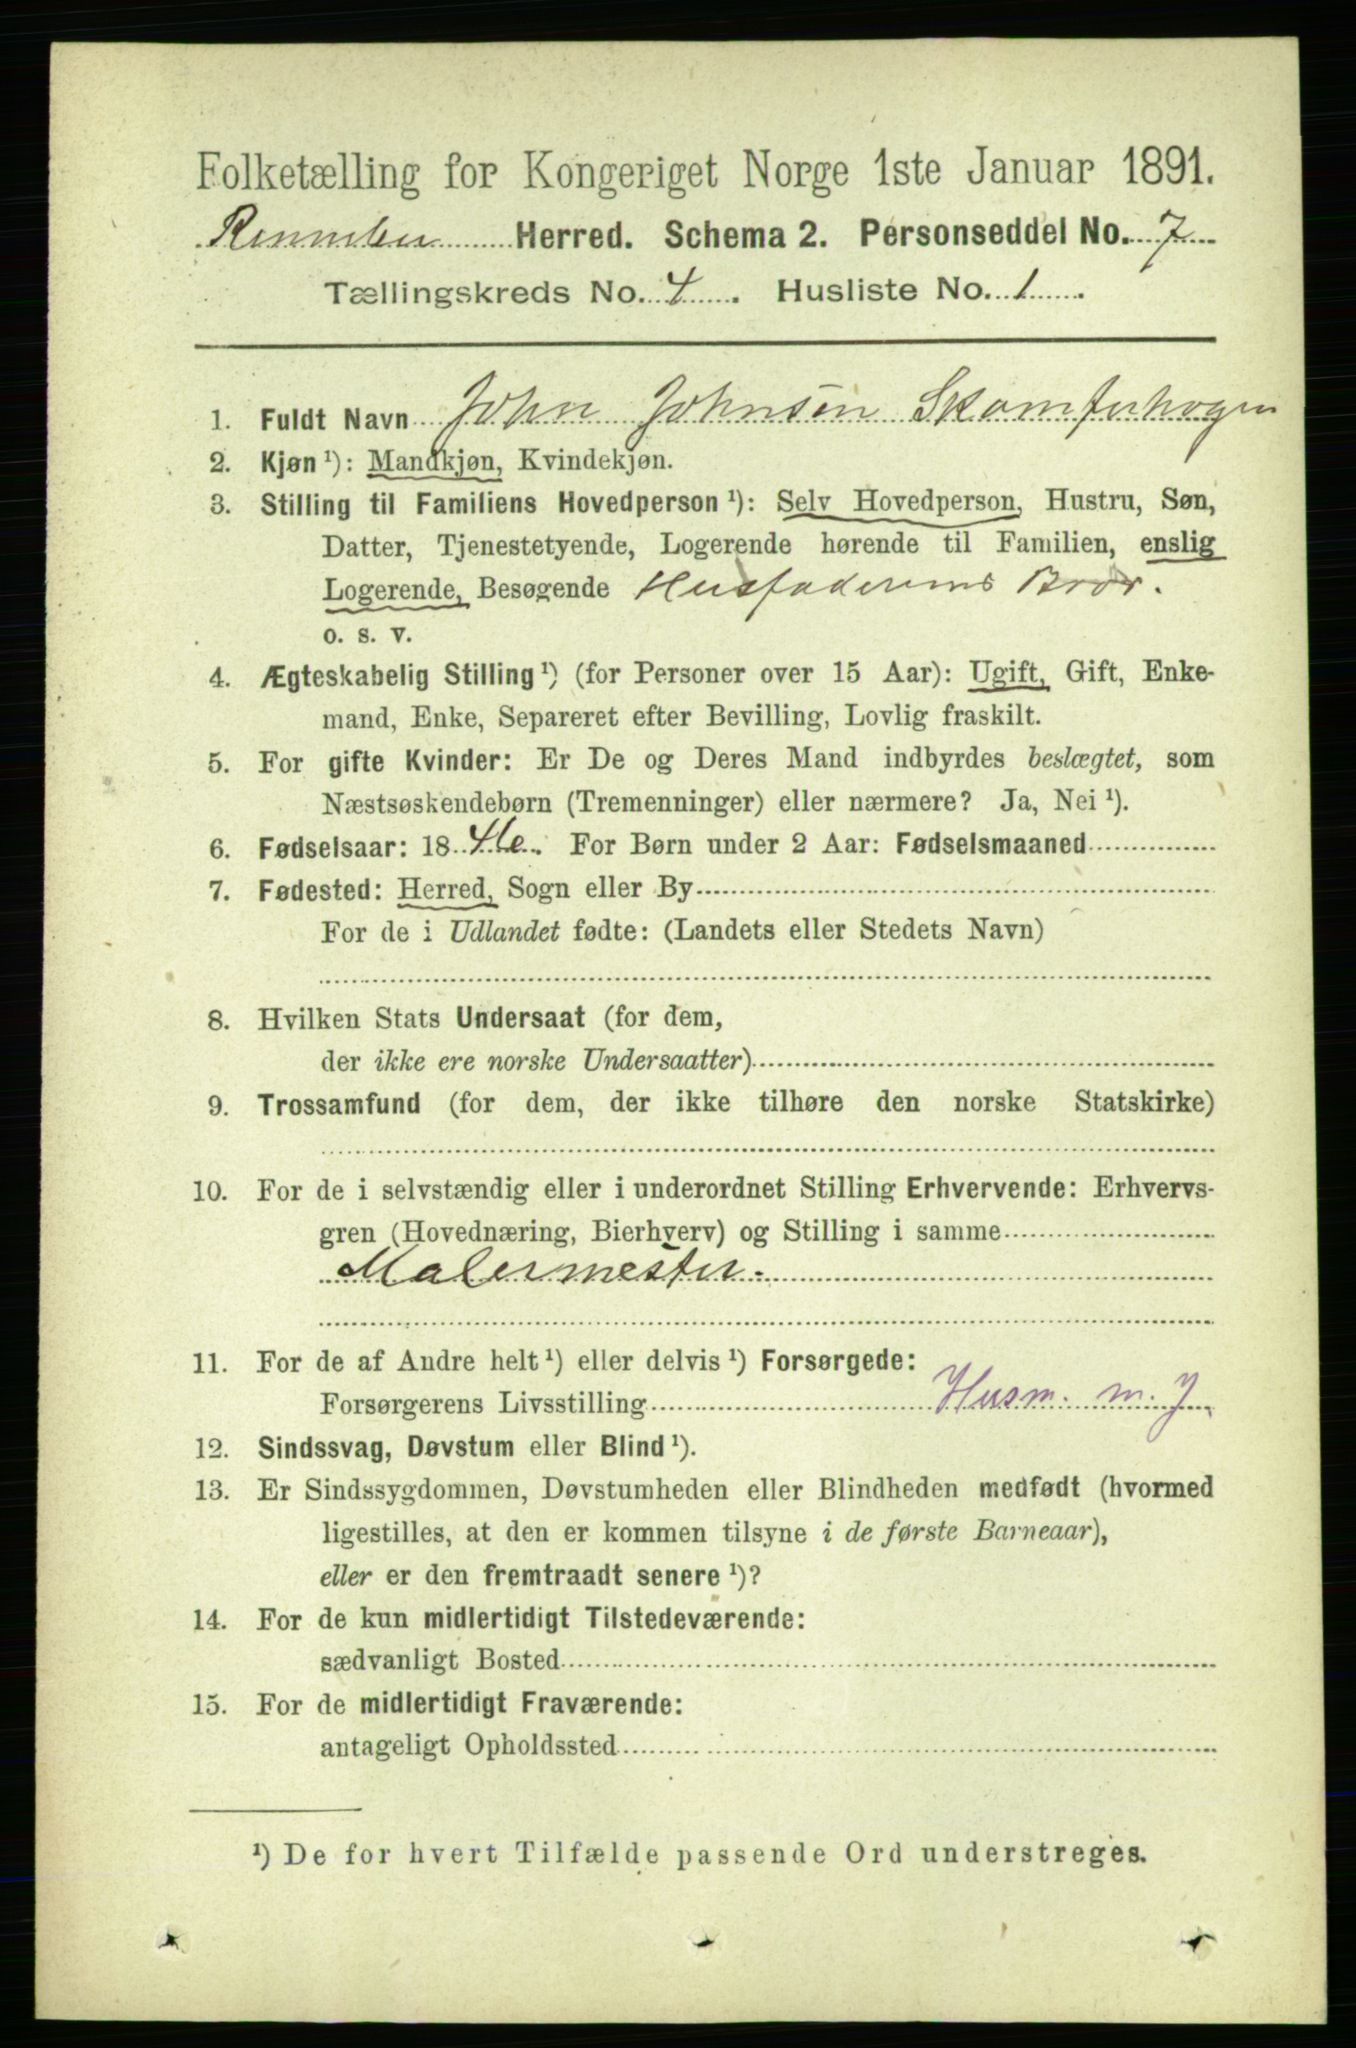 Folketælling for Kongeriget Norge 1ste Januar 1891.
Rennebu Herred. Schema 2. Personseddel No. 7
Tællingskreds No. 4. Husliste No. 1.
1. Fuldt Navn John Johnsen Skamferhogen
2. Kjøn ¹): Mandkjøn, Kvindekjøn.
3. Stilling til Familiens Hovedperson ¹): Selv Hovedperson, Hustru, Søn,
Datter, Tjenestetyende, Logerende hørende til Familien, enslig
Logerende, Besøgende Husfaderens Bror.
o. s. v.
4. Ægteskabelig Stilling ¹) (for Personer over 15 Aar): Ugift, Gift, Enke-
mand, Enke, Separeret efter Bevilling, Lovlig fraskilt.
5. For gifte Kvinder: Er De og Deres Mand indbyrdes beslægtet, som
Næstsøskendebørn (Tremenninger) eller nærmere? Ja, Nei ¹).
6. Fødselsaar: 1846. For Børn under 2 Aar: Fødselsmaaned
7. Fødested: Herred, Sogn eller By
For de i Udlandet fødte: (Landets eller Stedets Navn)
8. Hvilken Stats Undersaat (for dem,
der ikke ere norske Undersaatter)
9. Trossamfund (for dem, der ikke tilhøre den norske Statskirke)
10. For de i selvstændig eller i underordnet Stilling Erhvervende: Erhvervs-
gren (Hovednæring, Bierhverv) og Stilling i samme
Malermester.
11. For de af Andre helt ¹) eller delvis ¹) Forsørgede:
Forsørgerens Livsstilling Husm. m. J
12. Sindssvag, Døvstum eller Blind ¹).
13. Er Sindssygdommen, Døvstumheden eller Blindheden medfødt (hvormed
ligestilles, at den er kommen tilsyne i de første Barneaar),
eller er den fremtraadt senere ¹)?
14. For de kun midlertidigt Tilstedeværende:
sædvanligt Bosted
15. For de midlertidigt Fraværende:
antageligt Opholdssted
¹) De for hvert Tilfælde passende Ord understreges.